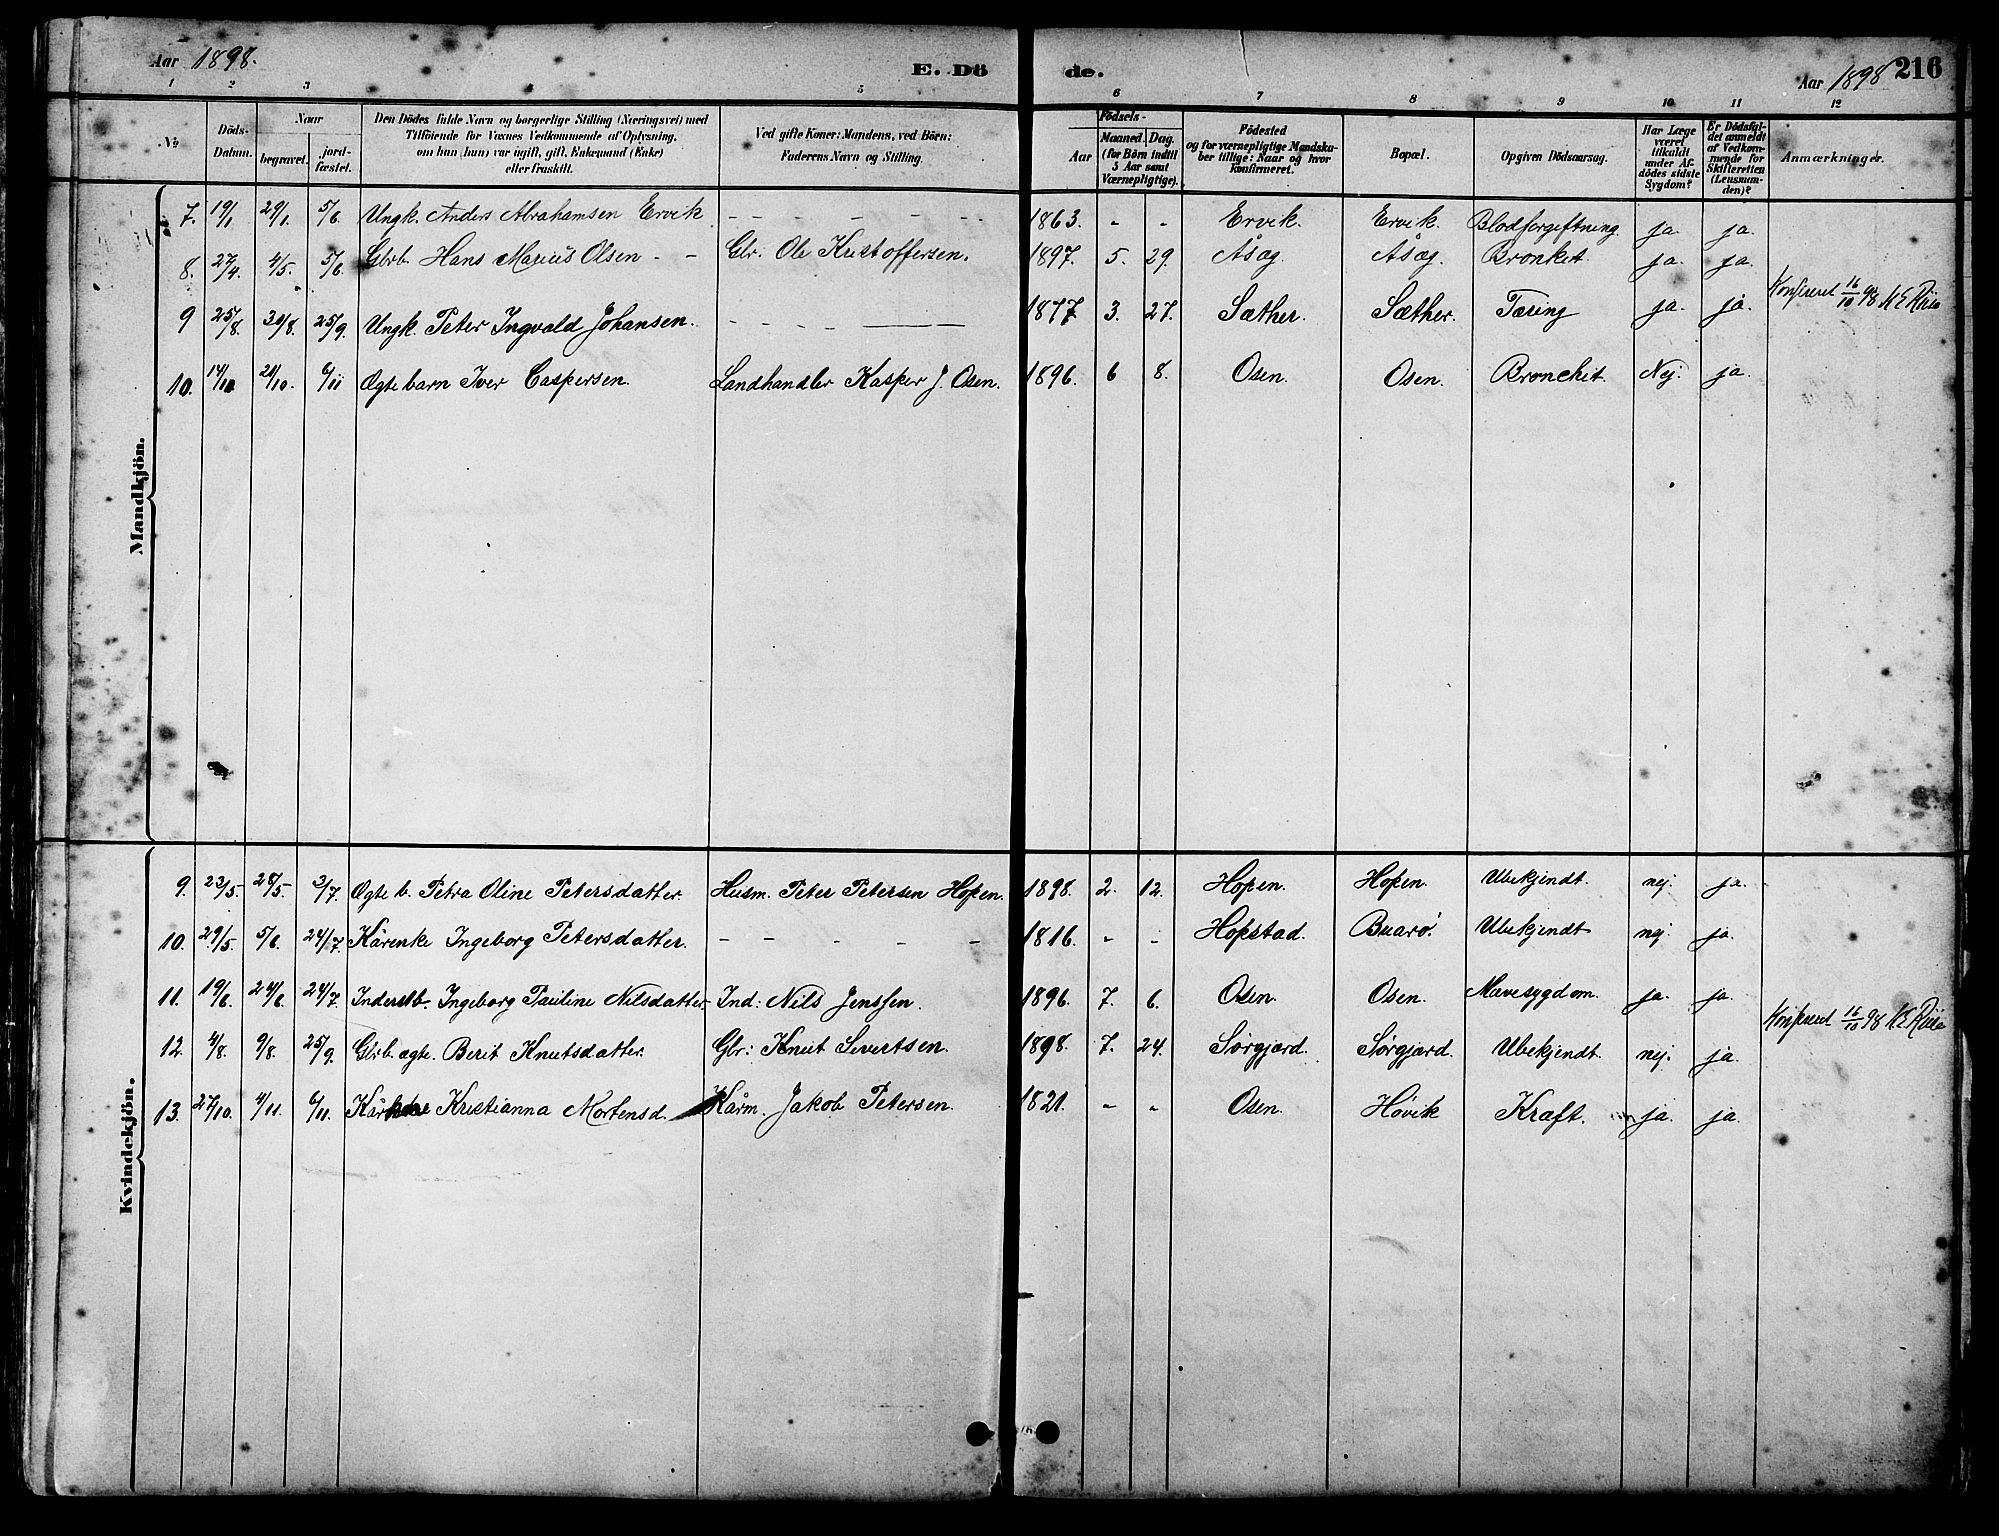 Aar 1898. E. Dö de. Aar 1898 216
1 2 3 4 5 6 7 8 9 10 11 12
№ Döds-Datum. Naar begravet. jord-fæstet. Den Dödes fulde Navn og borgerlige Stilling (Næringsvei) med Tilföiende for Voxnes Vedkommende af Oplysning, om han (hun) var ugift, gift, Enkemand (Enke) eller fraskilt. Ved gifte Koner: Mandens, ved Börn: Faderens Navn og Stilling. Födsels- Aar Maaned. Dag. (for Börn indtil 5 Aar samt Værnepligtige). Födested og for værnepligtige Mandska-ber tillige: Naar og hvor konfirmeret. Bopæl. Opgiven Dödsaarsag. Har Læge været tilkaldt under Af-dödes sidste Sygdom? Er Dödsfal-det anmeldt af Vedkom-mende for Skifteretten (Lensman-den)? Anmærkninger.
Mandkjön.
7. 19/1 29/1. 5/6. Ungk. Anders Abrahamsen Ervik - - - - - - 1863. - - Ervik. Ervik. Blodforgiftning ja. ja.
8. 27/4. 4/5. 5/6. Gbrb. Hans Marius Olsen - - Gbr. Ole Kristoffersen. 1897. 5. 29. Åsæg. Åsæg. Bronkit. ja. ja.
9 25/8. 30/8. 25/9. Ungk. Peter Ingvald Johansen. - - - - - 1877 3. 27. Sæther. Sæther. Tæring ja. ja. 16/10 98
10. 14/10 21/10. 6/11 Ægte barn Iver Caspersen. Landhandler Kasper J. Osen. 1896. 6 8. Osen. Osen. Bronchit. Nej. ja.
Kvindekjön.
9. 23/5. 28/5. 3/7. Ægte b. Petra Oline Petersdatter. Husm. Peter Petersen Hopen. 1898. 2. 12. Hopen. Hopen. Ubekjendt. nej. ja.
10. 29/5. 5/6. 24/7. Kårenke Ingeborg Petersdatter. - - - - - 1816. - - Hopstad. Buarø. Ubekjendt nej. ja.
11. 19/6. 24/6. 24/7. Inderstb. Ingeborg Pauline Nilsdatter. Ind: Nils Jenssen. 1896. 7. 6. Osen. Osen. Mavesygdom. ja. ja.
12. 4/8. 9/8. 25/9. Gbrb. ægte. Berit Knutsdatter. Gbr: Knut Sivertsen. 1898. 7. 24. Sørgjærd. Sørgjærd. Ubekjendt. nej. ja. 16/10 98
13. 27/10. 4/11. 6/11. Kristianna Mortensd. Kårm. Jakob Petersen. 1821. - - Osen. Høvik Kræft. ja. ja.